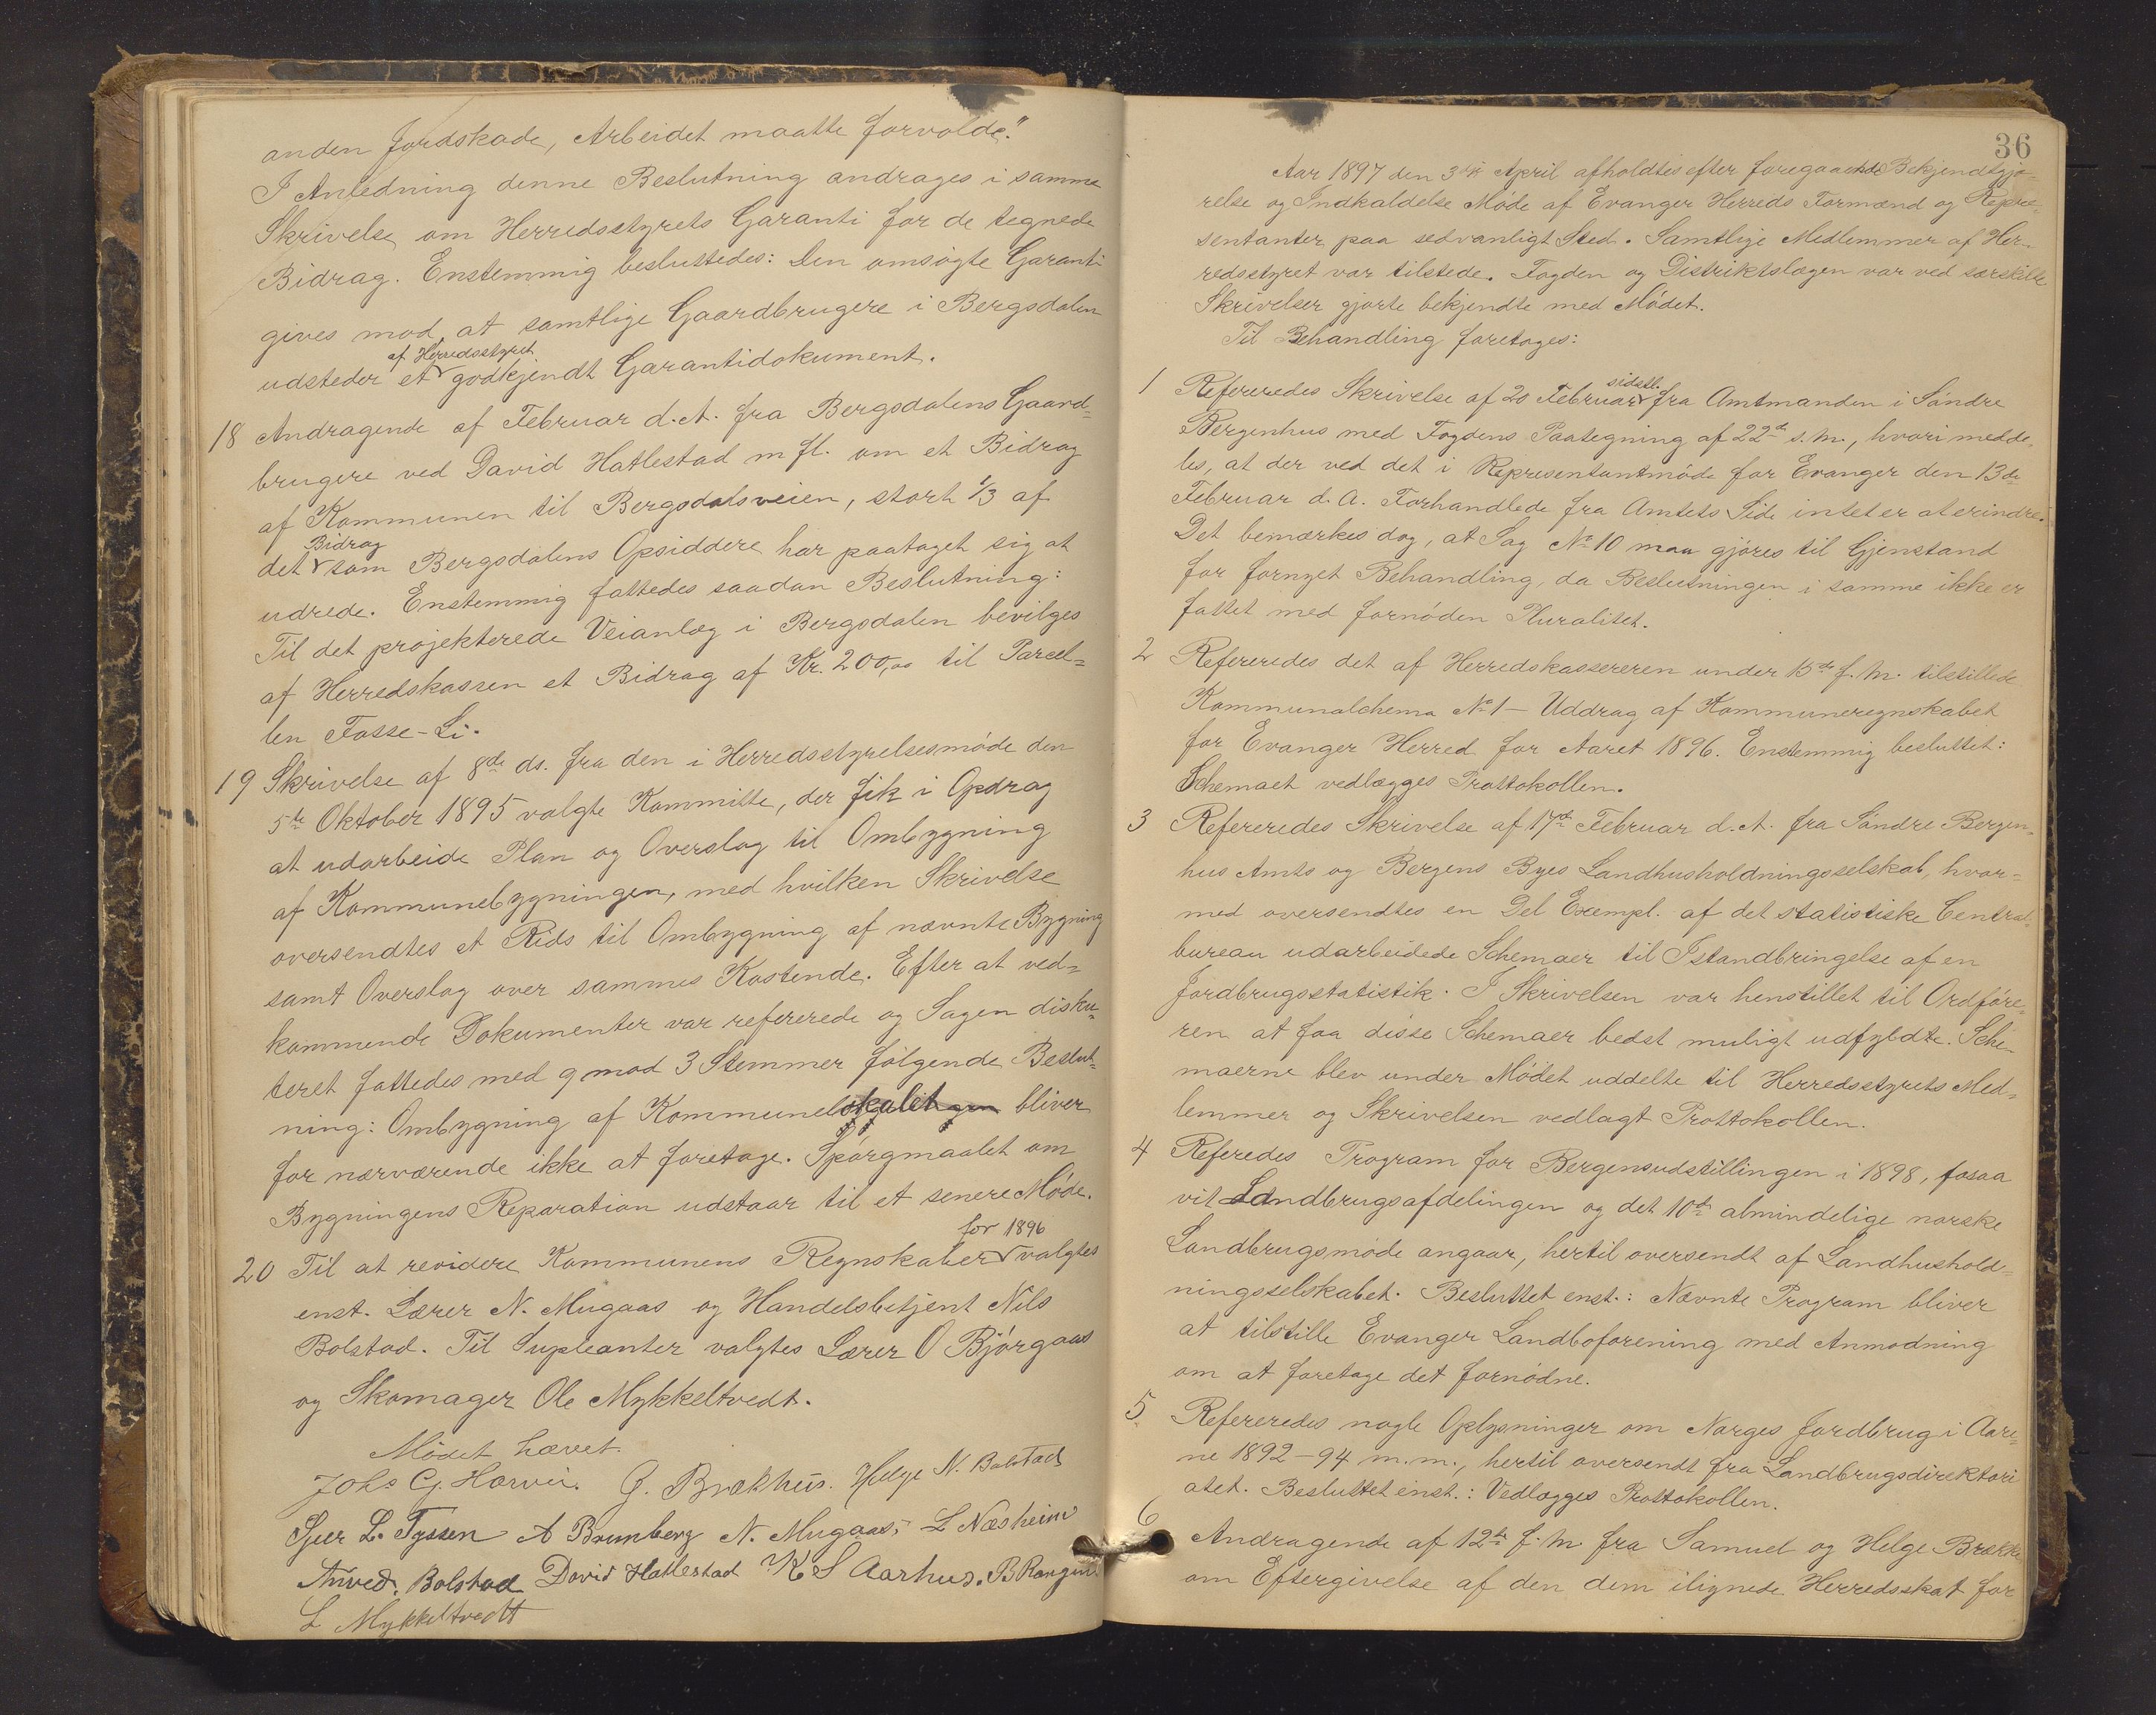 anden Jordskade, Arbeidet maatte forvolde."
I Anledning denne Beslutning andrages i samme
Skrivelse om Herredsstyrets Garanti for de tegnede
Bidrag. Enstemmig besluttedes: Den omsøgte Garanti
gives mod, at samtlige Gaardbrugere i Bergsdalen
af Herredsstyret
udsteder et godkjendt Garantidokument.
18 Andragende af Februar d.A. fra Bergsdalens Gaard=
brugere ved David Hatlestad m fl. om et Bidrag
af Kommunen til Bergsdalsveien, stort 1/3 af
Bidrag
det som Bergsdalens Opsiddere har paataget sig at
udrede. Enstemmig fattedes saadan Beslutning:
Til det projekterede Veianlæg i Bergsdalen bevilges
af Herredskassen et Bidrag af Kr. 200,00 til Parcel=
len Fosse-Li.
19 Skrivelse af 8de ds. fra den i Herredsstyrelsesmøde den
5te Oktober 1895 valgte Kommitte, der fik i Opdrag
at udarbeide Plan og Overslag til Ombygning
af Kommunebygningen, med hvilken Skrivelse
oversendtes et Rids til Ombygning af nævnte Bygning
samt Overslag over sammes Kostende. Efter at ved=
kommende Dokumenter var refererede og Sagen disku=
teret fattedes med 9 mod 3 Stemmer følgende Beslut=
ning: Ombygning af Kommunelokalet bliver
for nærværende ikke at foretage. Spørgmaalet om
Bygningens Reparation udstaar til et senere Møde.
for 1896
20 Til at revidere Kommunens Regnskaber valgtes
enst. Lærer N. Mugaas og Handelsbetjent Nils
Bolstad. Til Supleanter valgtes Lærer O Bjørgaas
og Skomager Ole Mykkeltvedt.
Mødet hævet.
Johs G. Horvei. G. Brækhus. Helge N. Bolstad
Sjur L. Tyssen A Brunberg N. Mugaas, L Næsheim
Anved. Bolstad David Hatlestad K S Aarhus. B Rongen
L Mykkeltvedt
36
Aar 1897 den 3die April afholdtes efter foregaaende Bekjendtgjø-
relse og Indkaldelse Møde af Evanger Herreds Formænd og Repre-
sentanter paa sedvanligt Sted. Samtlige Medlemmer af Her-
redsstyret var tilstede. Fogden og Distriktslægen var ved særskilte
Skrivelser gjorte bekjendte med Mødet.
Til Behandling foretoges:
sidstl.
1 Refereredes Skrivelse af 20 Februar fra Amtmanden i Søndre
Bergenhus med Fogdens Paategning af 22de s.M., hvori medde-
les, at der ved det i Representantmøde for Evanger den 13de
Februar d. A. Forhandlede fra Amtets Side intet er at erindre.
Det bemærkes dog, at Sag No 10 maa gjøres til Gjenstand
for fornyet Behandling, da Beslutningen i samme ikke er
fattet med fornøden Pluralitet.
2 Refereredes det af Herredskassereren under 15de f. M. tilstillede
Kommunalchema No 1 - Uddrag af Kommuneregnskabet
for Evanger Herred for Aaret 1896. Enstemmig besluttet:
Schemaet vedlægges Prottokollen.
3 Refereredes Skrivelse af 17de Februar d.A. fra Søndre Bergen-
hus Amts og Bergens Byes Landhusholdningsselskab, hvor=
med oversendtes en Del Exempl. af det statistiske Central-
bureau udarbeidede Schemaer til Istandbringelse af en
Jordbrugsstatistik. I Skrivelsen var henstillet til Ordføre=
ren at faa disse Schemaer bedst muligt udfyldte. Sche-
maerne blev under Mødet uddelte til Herredsstyrets Med-
lemmer og Skrivelsen vedlagt Prottokollen.
4 Referedes Program for Bergensudstillingen i 1898, fosaa
vit Landbrugsafdelingen og det 10de almindelige norske
Landbrugsmøde angaar, hertil oversendt af Landhushold=
ningsselskabet. Besluttet enst.: Nævnte Program bliver
at tilstille Evanger Landboforening med Anmodning
om at foretage det fornødne.
5. Refereredes nogle Oplysninger om Norges Jordbrug i Aare-
ne 1892-94 m.m., hertil oversendt fra Landbrugsdirektori
atet. Besluttet enst.: Vedlægges Prottokollen.
6 Andragende af 12te f. M. fra Samuel og Helge Brække
om Eftergivelse af den dem ilignede Herredsskat for